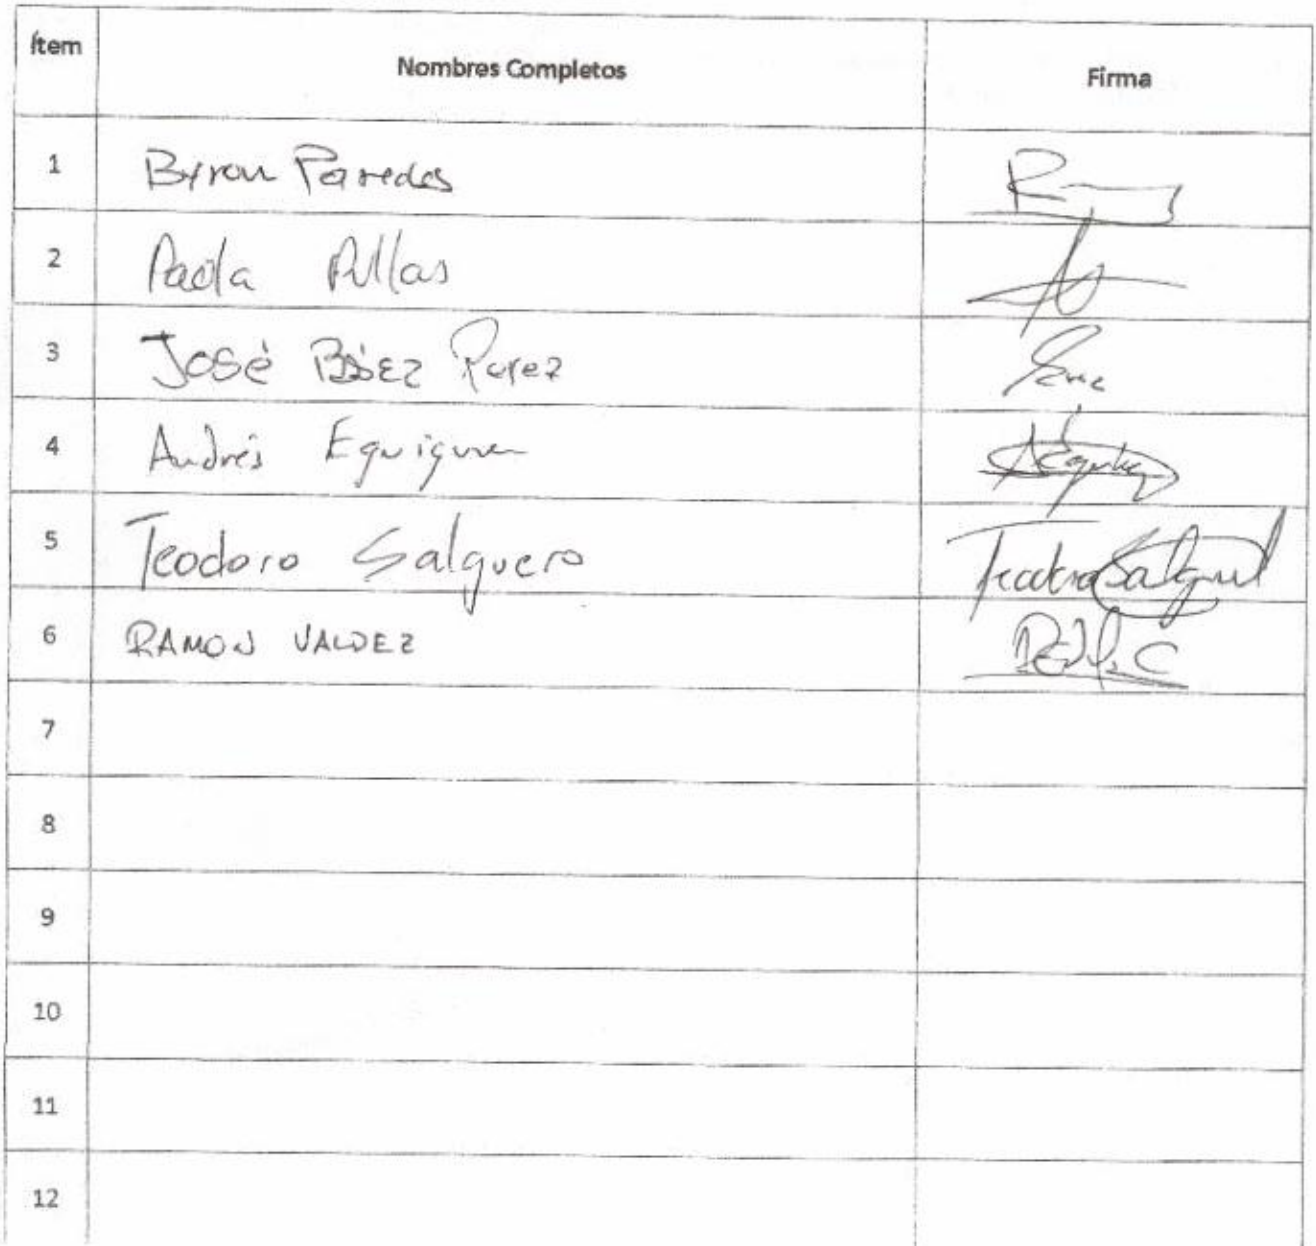 Ítem Nombres Completos Firma
1 Byron Paredes
2 Paola Pullas
3 José Báez
4 Andrés Eguiguren
5 Teodoro Salguero Teodoro Salguero
6 RAMON VALDEZ
7
8
9
10
11
12